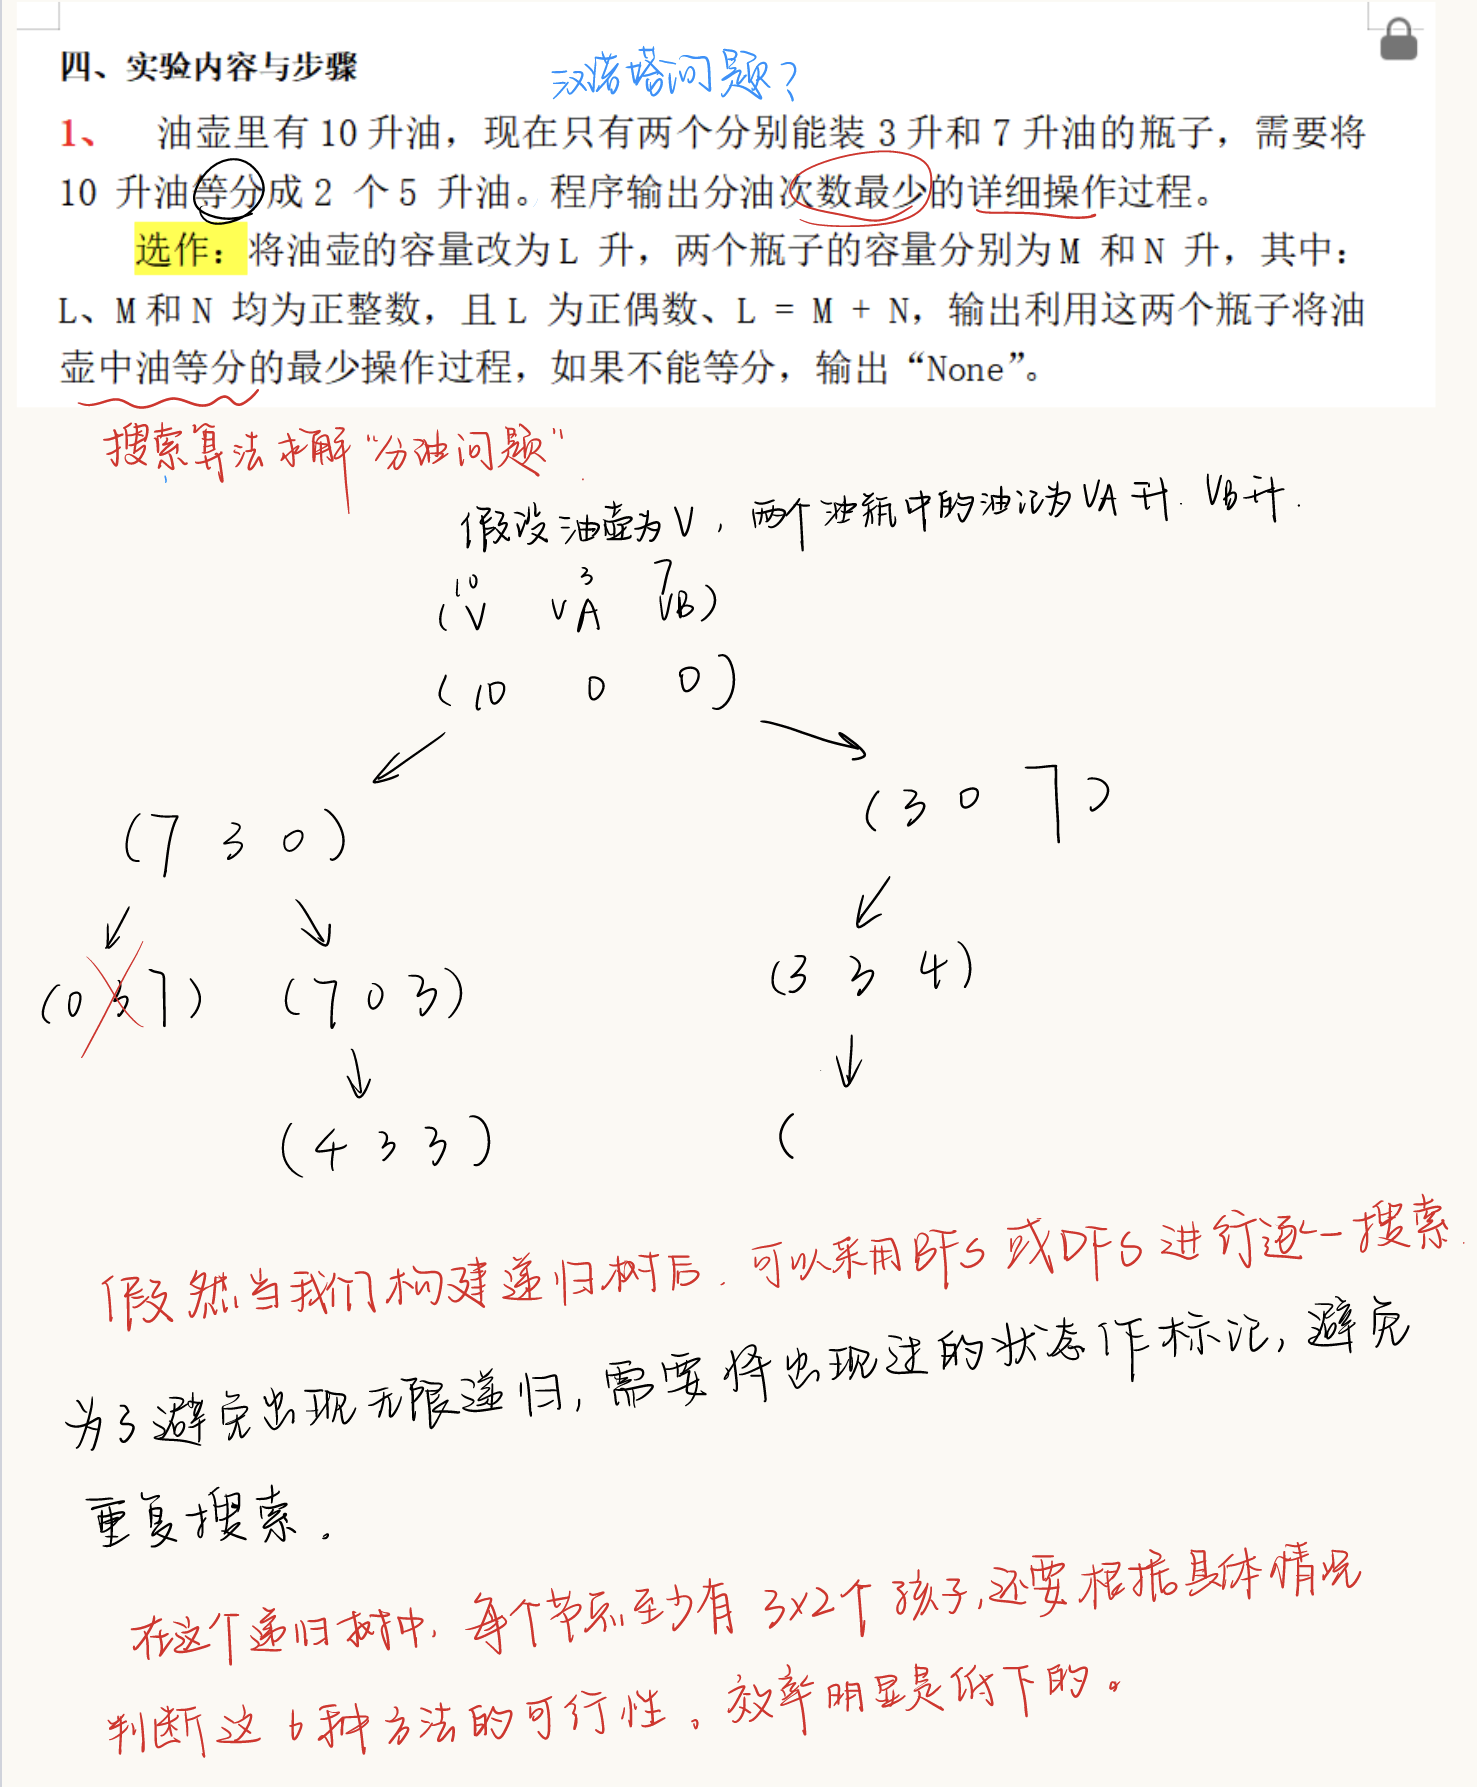 四、实验内容与步骤
汉诺塔问题?
1、 油壶里有 10 升油，现在只有两个分别能装 3 升和 7 升油的瓶子，需要将
10 升油等分成 2 个 5 升油。程序输出分油次数最少的详细操作过程。
选作：将油壶的容量改为 L 升，两个瓶子的容量分别为 M 和 N 升，其中：
L、M 和 N 均为正整数，且 L 为正偶数、L = M + N，输出利用这两个瓶子将油
壶中油等分的最少操作过程，如果不能等分，输出“None”。
搜索算法求解“分油问题”.
假设油壶为V，两个油瓶中的油记为VA升. VB升.
10 3 7
(V VA VB)
(10 0 0)
(7 3 0) (3 0 7)
(0 3 7) (7 0 3) (3 3 4)
(4 3 3) (
假然当我们构建递归树后. 可以采用BFS或DFS进行逐一搜索.
为了避免出现无限递归, 需要将出现过的状态作标记, 避免
重复搜索.
在这个递归树中, 每个节点至少有 3×2个孩子,还要根据具体情况
判断这 6种方法的可行性。效率明显是低下的。